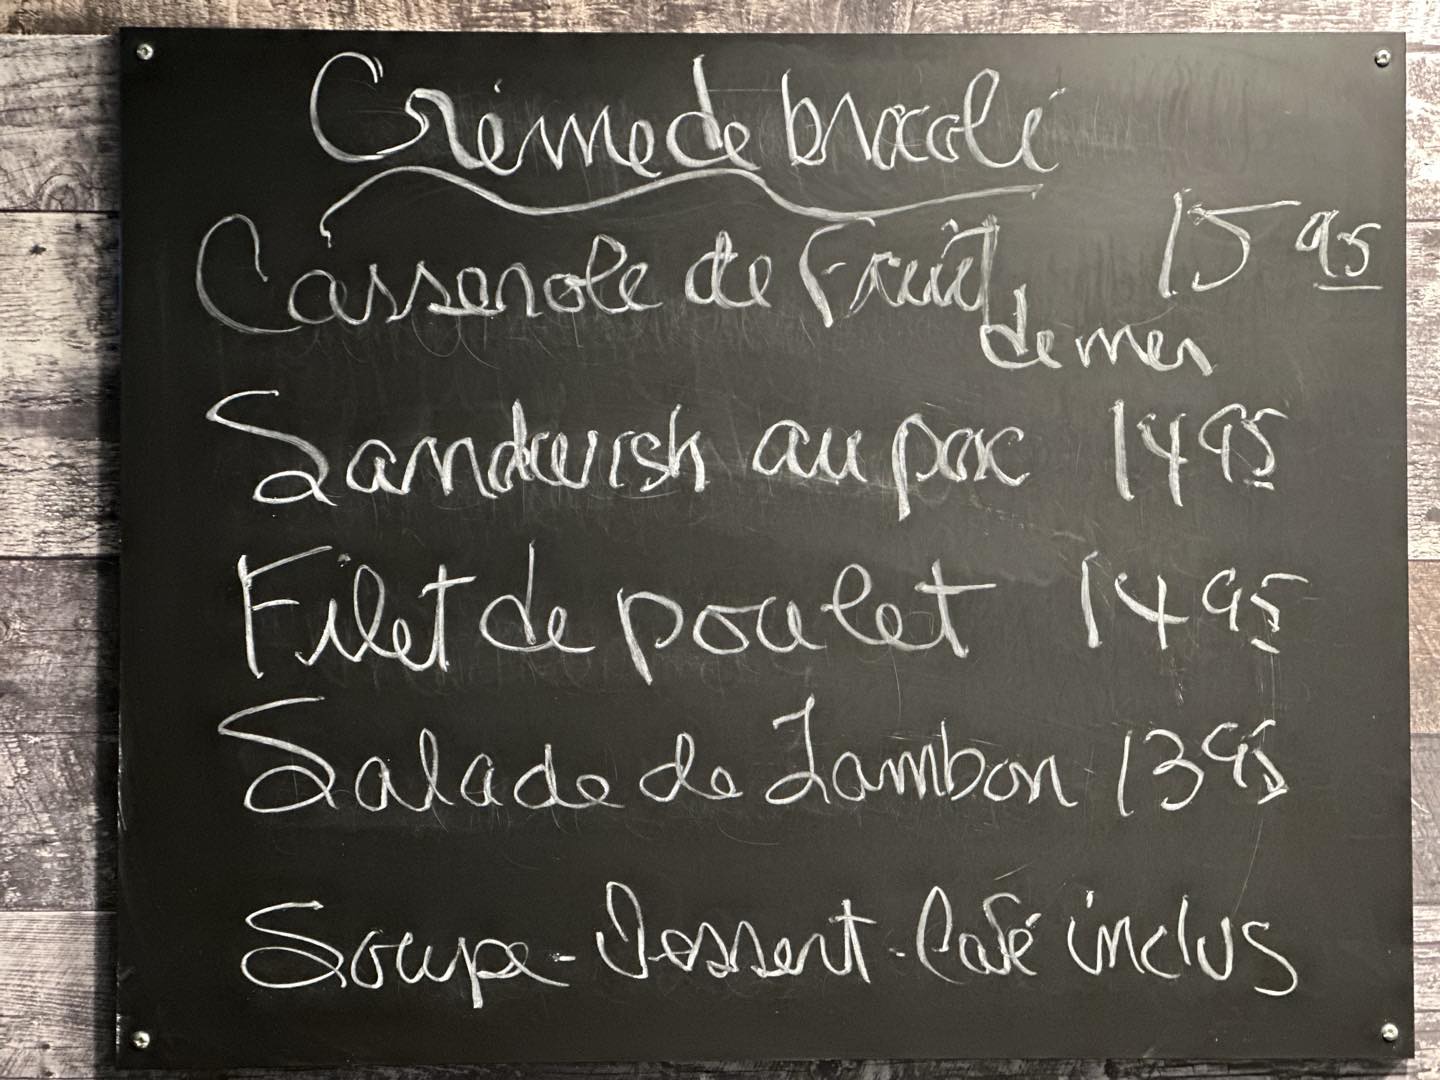 Crème de brocoli
Casserole de Fruit 15 95
de mer
Sandwish au porc 14 95
Filet de poulet 14 95
Salade de Jambon 13 95
Soupe - Dessert - Café inclus